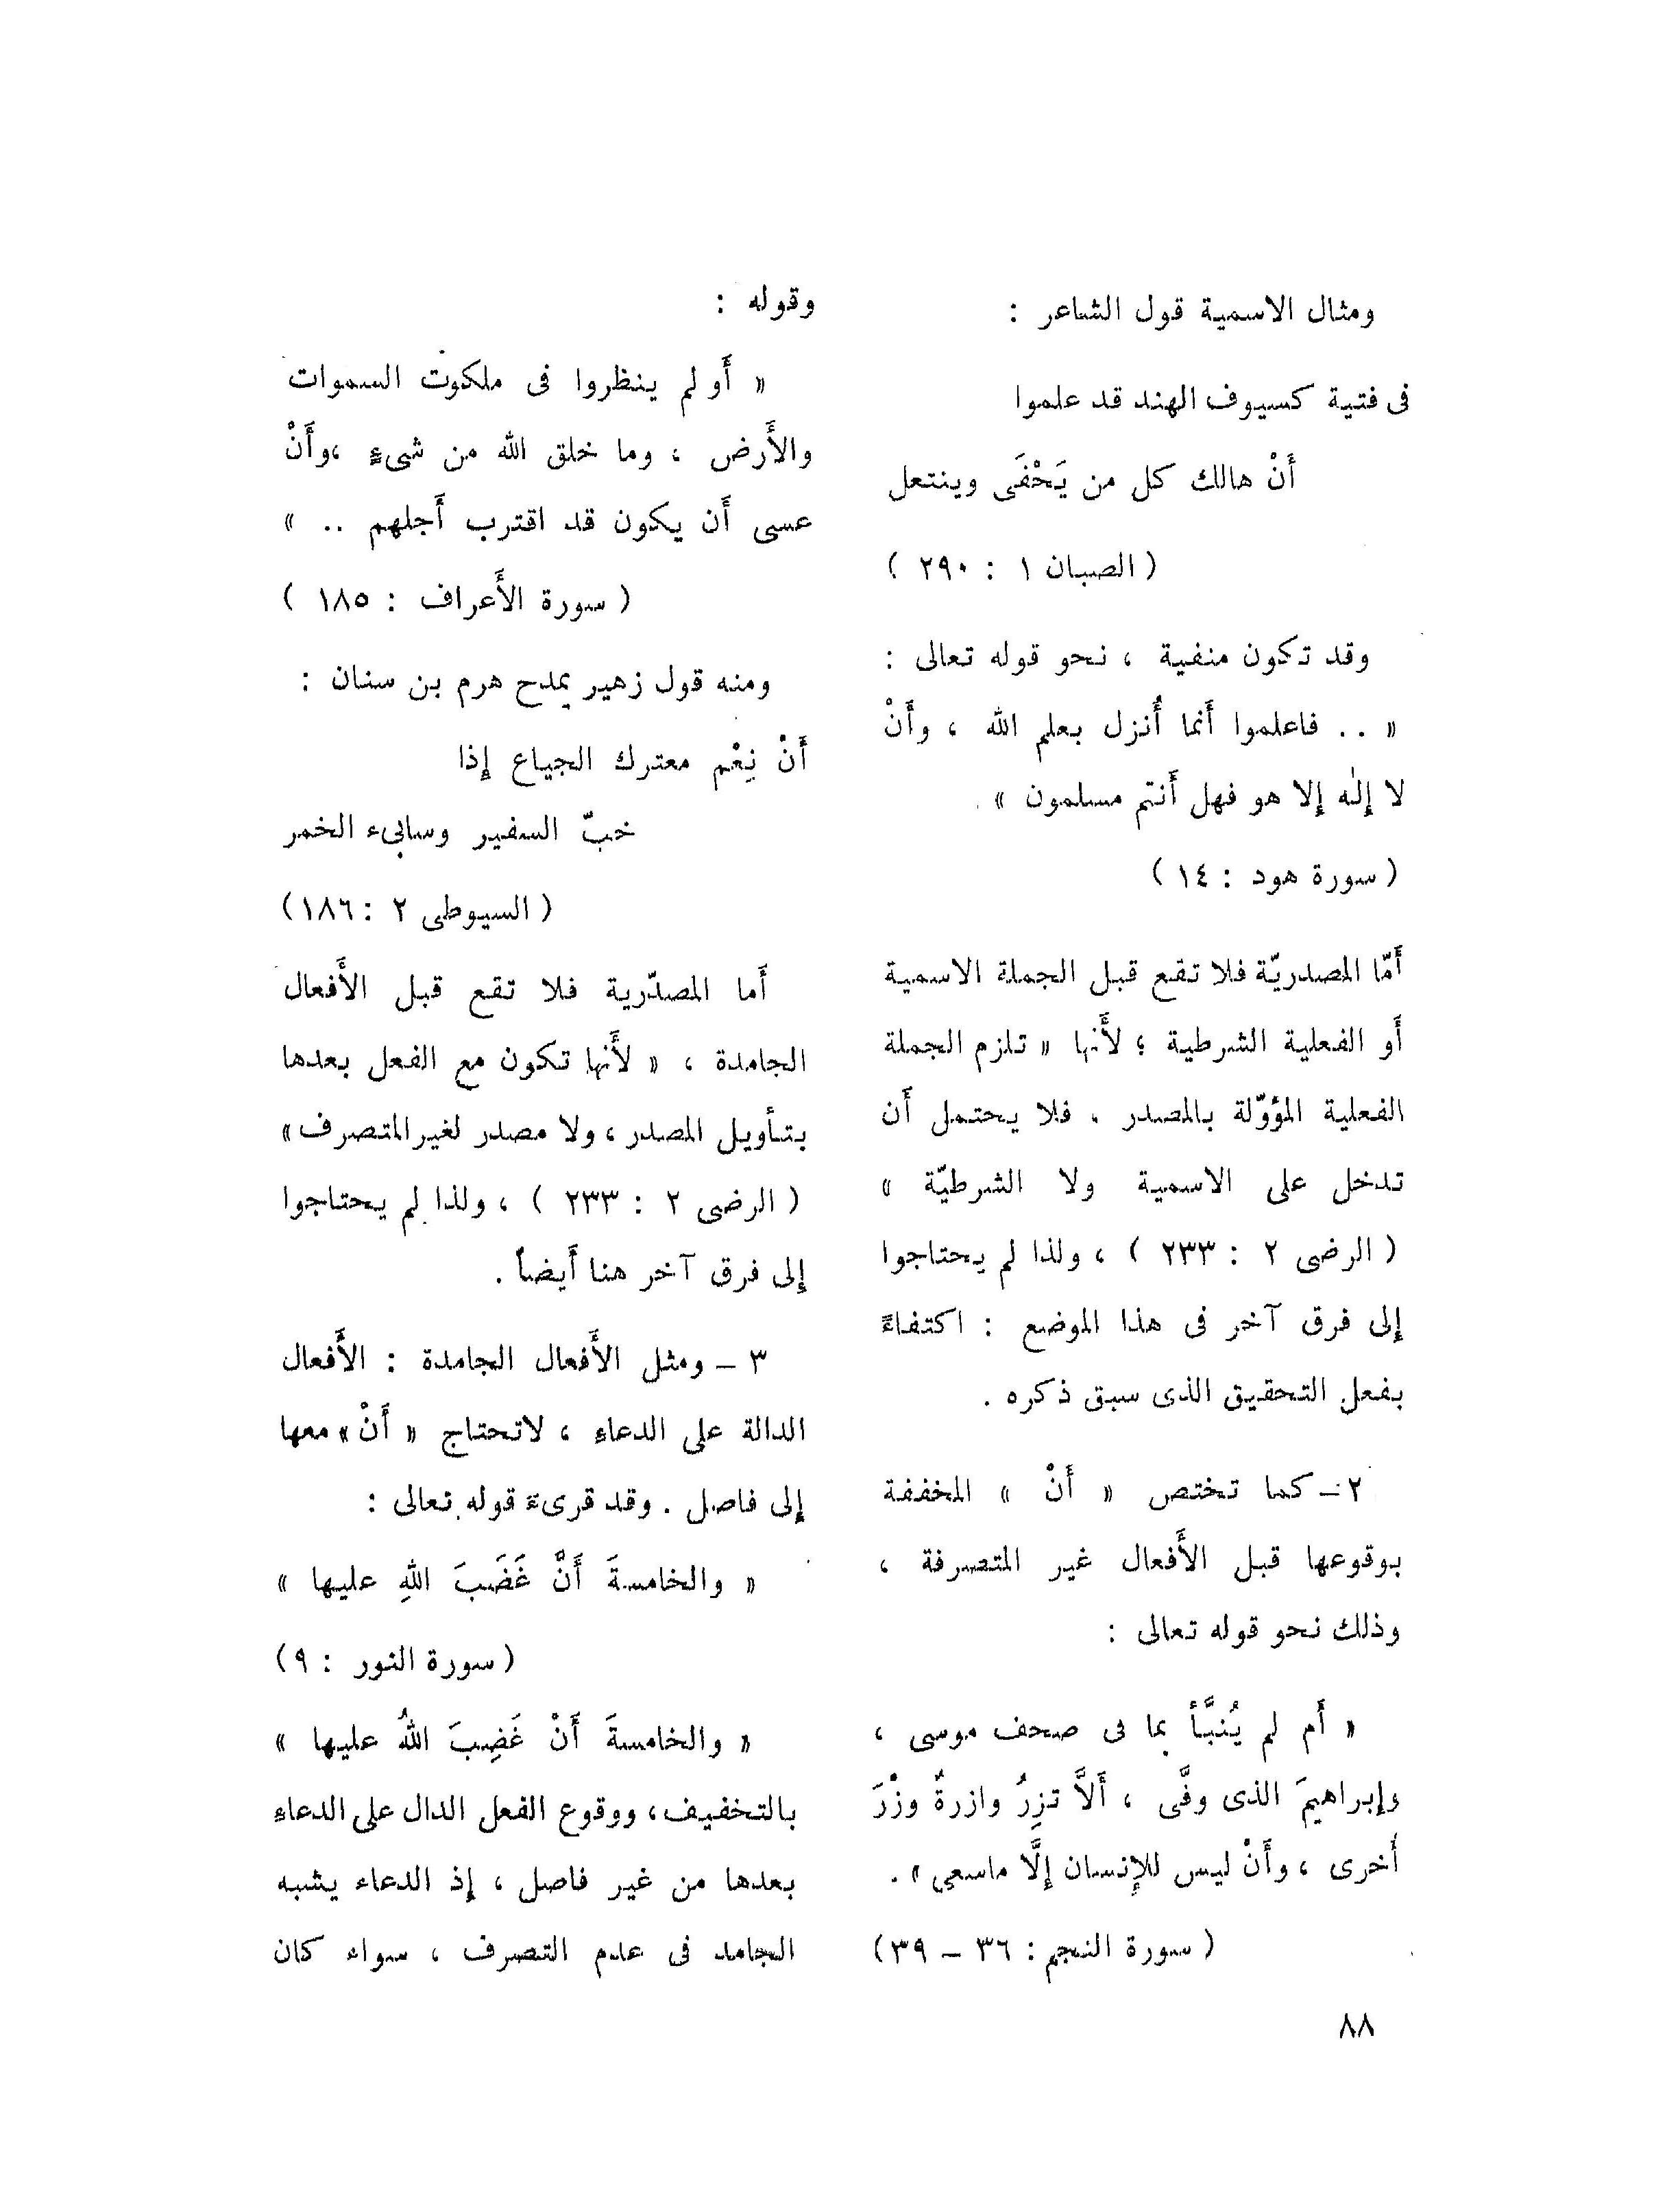 ومثال الاسمية قول الشاعر :
فى فتية كسيوف الهند قد علموا
أَنْ هالك كل من يَحْفَى وينتعل
( الصبان ١ : ٢٩٠ )
وقد تكون منفية ، نحو قوله تعالى :
« .. فاعلموا أَنما أُنزل بعلم الله ، وأَنْ
لا إِلٰه إِلا هو فهل أَنتم مسلمون » .
( سورة هود : ١٤ )
أَمّا المصدريّة فلا تقع قبل الجملة الاسمية
أَو الفعلية الشرطية ؛ لأَنها « تلزم الجملة
الفعلية المؤوّلة بالمصدر . فلا يحتمل أَن
تدخل على الاسمية ولا الشرطيّة »
( الرضى ٢ : ٢٣٣ ) ، ولذا لم يحتاجوا
إِلى فرق آخر فى هذا الموضع : اكتفاءً
بفعل التحقيق الذى سبق ذكره .
٢ – كما تختص « أَنْ » المخففة
بوقوعها قبل الأَفعال غير المتصرفة ،
وذلك نحو قوله تعالى :
« أَم لم يُنبَّأ بما فى صحف موسى ،
وإِبراهيمَ الذى وفَّى ، أَلاَّ تزِرُ وازرةٌ وزْرَ
أُخرى ، وأَنْ ليس للإِنسان إِلَّا ماسعى » .
( سورة النجم : ٣٦ – ٣٩ )
وقوله :
« أَو لم ينظروا فى ملكوت السموات
والأَرض ، وما خلق الله من شىءٍ ، وأَنْ
عسى أَن يكون قد اقترب أَجلهم .. »
( سورة الأَعراف : ١٨٥ )
ومنه قول زهير يمدح هرم بن سنان :
أَنْ نِعْم معترك الجياع إِذا
خبّ السفير وسابىء الخمر
( السيوطى ٢ : ١٨٦ )
أَما المصدّرية فلا تقع قبل الأَفعال
الجامدة ، « لأَنها تكون مع الفعل بعدها
بتأويل المصدر ، ولا مصدر لغير المتصرف »
( الرضى ٢ : ٢٣٣ ) ، ولذا لم يحتاجوا
إِلى فرق آخر هنا أَيضاً .
٣ – ومثل الأَفعال الجامدة : الأَفعال
الدالة على الدعاءِ ، لاتحتاج « أَنْ » معها
إِلى فاصل . وقد قرىءَ قوله تعالى :
« والخامسةَ أَنَّ غَضَبَ اللهِ عليها »
( سورة النور : ٩ )
« والخامسةَ أَنْ غَضِبَ اللهُ عليها »
بالتخفيف ، ووقوع الفعل الدال على الدعاءِ
بعدها من غير فاصل ، إِذ الدعاء يشبه
الجامد فى عدم التصرف ، سواء كان
٨٨